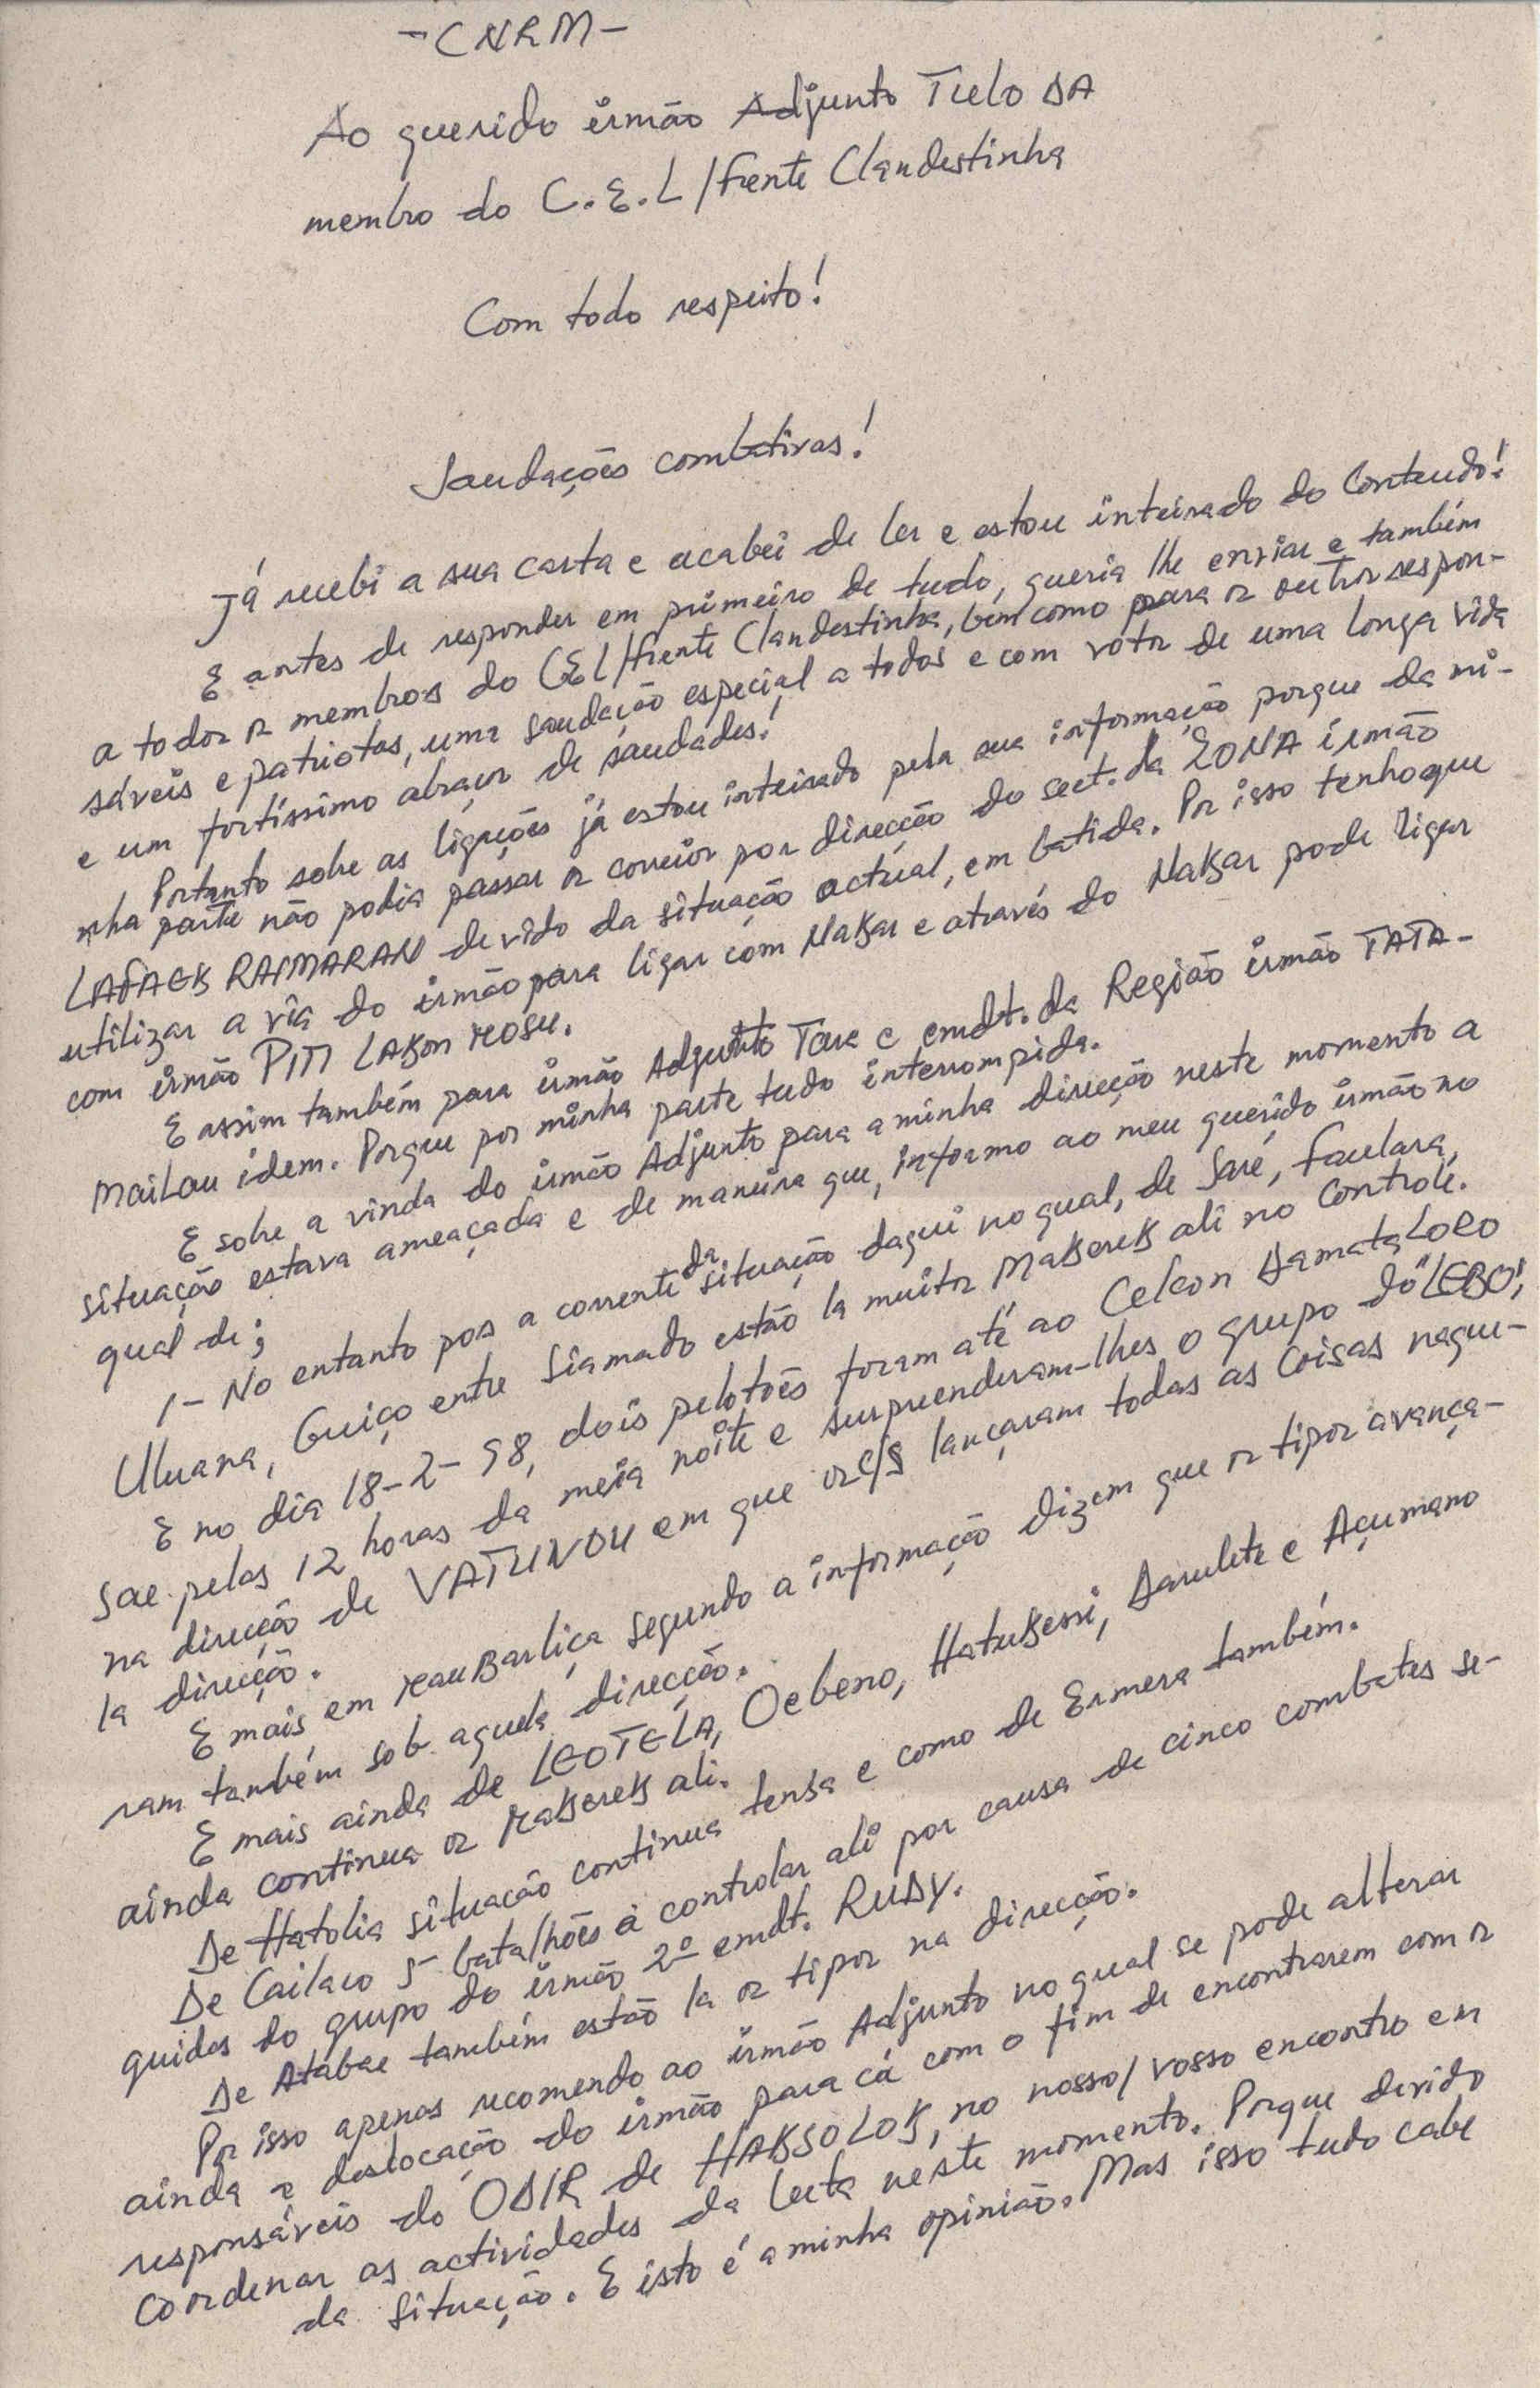 - CNRM -
Ao querido irmão Adjunto Tuelo DA
membro do C.E.L/Frente Clandestinha
Com todo respeito!
Saudações combativas!
Já recebi a sua carta e acabei de ler e estou inteirado do Conteudo!
E antes de responder em primeiro de tudo, queria lhe enviar e também
a todos os membros do CEL/Frente Clandestinha, bem como para os outros respon-
sáveis e patriotas, uma saudação especial a todos e com votos de uma longa vida
e um fortíssimo abraços de saudades!
Portanto sobre as ligações já estou inteirado pela sua informação porque da mi-
nha parte não podia passar os correios por direcção do sect. da ZONA irmão
LAFAEK RAIMARAN devido da situação actual, em batida. Por isso tenho que
utilizar a via do irmão para ligar com Nakar e através do Nakar pode ligar
com irmão PITI LAKON MOSU.
E assim também para irmão Adjunto Tara e cmdt. da Região irmão TATA-
MAILAU idem. Porque por minha parte tudo interrompida.
E sobre a vinda do irmão Adjunto para a minha direcção neste momento a
situação estava ameaçada e de maneira que, informo ao meu querido irmão no
qual de;
1- No entanto pos a corrente da situação daqui no qual, de Saré, Faulara,
Uluana, Guiço entre Siamado estão la muitos Makerek ali no Controlé.
E no dia 18-2-98, dois pelotões foram até ao Celcon Damata LORO
Sae pelas 12 horas da meia noite e surpreenderam-lhes o grupo do "LEBO",
na direcção de VATUVOU em que os c/s lançaram todas as coisas naque-
la direcção.
E mais em MauBarliça segundo a informação dizem que os tipos avança-
ram também sob aquela direcção.
E mais ainda de LEOTELA, Oebeno, Hatukessi, Darulete e Açumano
ainda continua os Makerek ali.
De Hatolia situação continua tensa e como de Ermera também.
De Cailaco 5- batalhões à controlar ali por causa de cinco combates se-
guidos do grupo do irmão 2º cmdt. RUDY.
De Atabae também estão la os tipos na direcção.
Por isso apenas recomendo ao irmão Adjunto no qual se pode alterar
ainda a deslocação do irmão para cá com o fim de encontrarem com os
responsáveis do ODIR de HAKSOLOK, no nosso/vosso encontro en
Coordenar as actividades da luta neste momento. Porque devido
da situação. E isto é a minha opinião. Mas isso tudo cabe